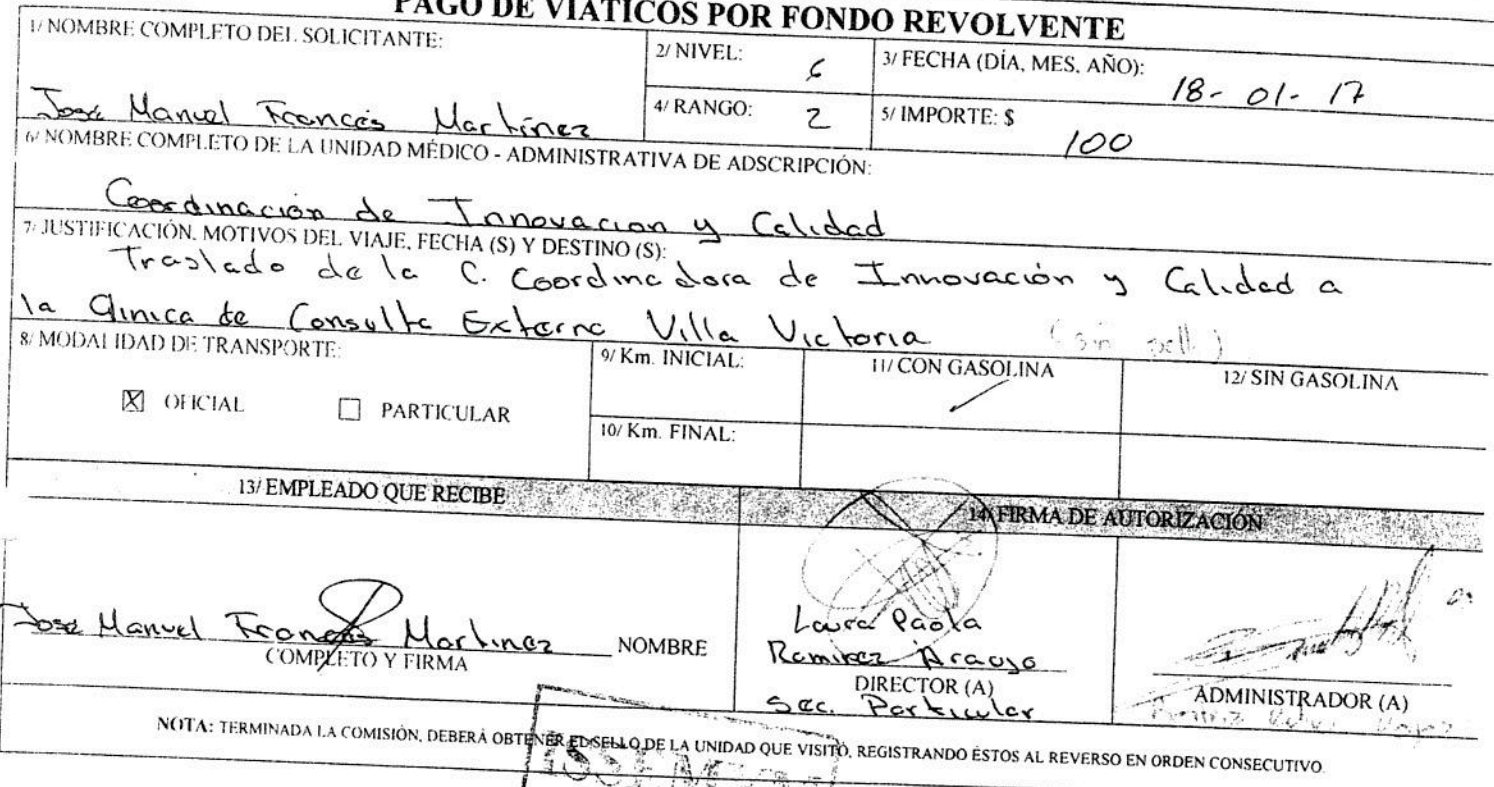 PAGO DE VIÁTICOS POR FONDO REVOLVENTE
1/ NOMBRE COMPLETO DEL SOLICITANTE:
José Manuel Francés Martínez
2/ NIVEL: 6
3/ FECHA (DÍA, MES, AÑO): 18-01-17
4/ RANGO: 2
5/ IMPORTE: $ 100
6/ NOMBRE COMPLETO DE LA UNIDAD MÉDICO - ADMINISTRATIVA DE ADSCRIPCIÓN:
Coordinación de Innovacion y Calidad
7/ JUSTIFICACIÓN, MOTIVOS DEL VIAJE, FECHA (S) Y DESTINO (S):
Traslado de la C. Coordinadora de Innovación y Calidad a
la Clinica de Consulta Externa Villa Victoria
8/ MODALIDAD DE TRANSPORTE:
☒ OFICIAL ☐ PARTICULAR
9/ Km. INICIAL:
10/ Km. FINAL:
11/ CON GASOLINA
12/ SIN GASOLINA
13/ EMPLEADO QUE RECIBE
14/ FIRMA DE AUTORIZACIÓN
José Manuel Francés Martinez NOMBRE
COMPLETO Y FIRMA
Laura Paola
Ramirez Araujo
DIRECTOR (A)
Sec. Particular
ADMINISTRADOR (A)
NOTA: TERMINADA LA COMISIÓN, DEBERÁ OBTENER EL SELLO DE LA UNIDAD QUE VISITÓ, REGISTRANDO ÉSTOS AL REVERSO EN ORDEN CONSECUTIVO.